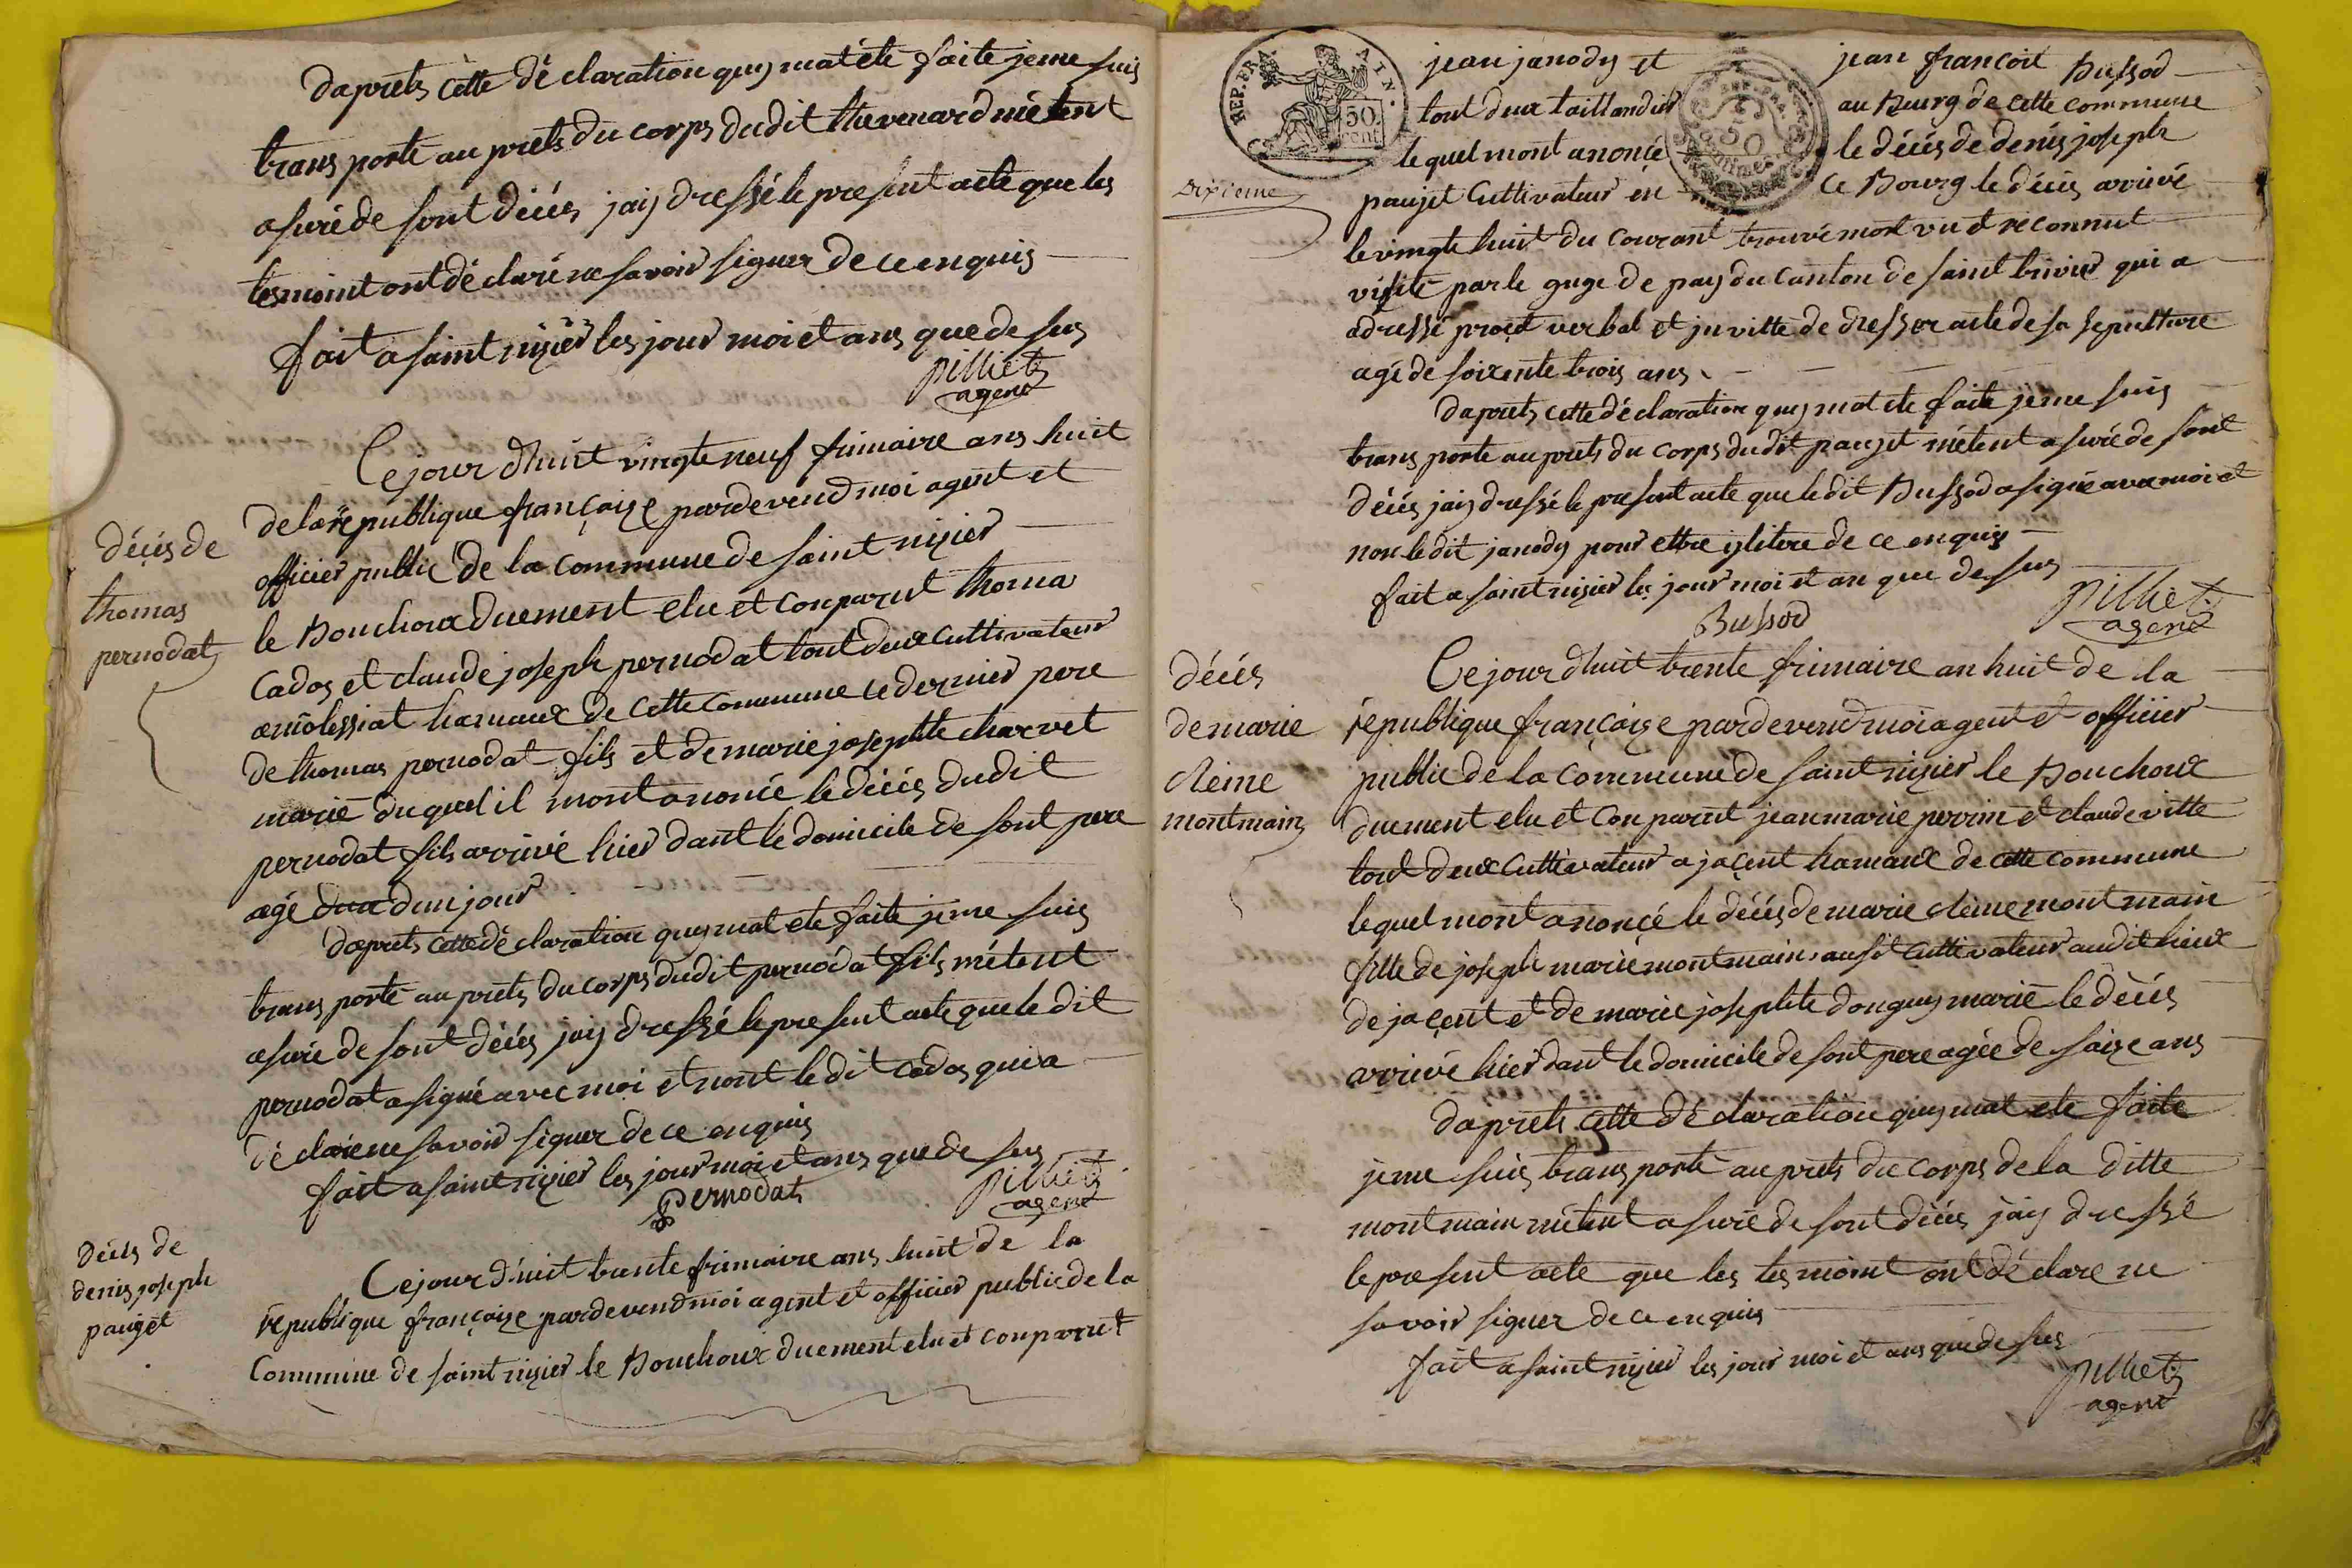 daprets cette dé claration quy mat été faite je me suis
trans porté au prets du corps dudit thevenard métent
asuré de sont décés jaiy dressé le present acte que les
tesmoint ont dé claré ne savoir signer de ce enquis
fait a saint nizier les jour moi et ans que de sus
pilliet
agent
décés de
thomas
pernodat
Ce jour dhuit vingte neuf frimaire ans huit
de la république françaize pardevend moi agent et
officier public de la commune de saint nizier
le Bouchoux duement elu et conparut thoma
Cados et claude joseph pernodat tout deux cultivateur
a molessiat hamaux de cette commune ce dernier pere
de thomas pernodat fils et de marie josephte charvet
marié duquel il mont anoncé le décés dudit
pernodat fils arrivé hier dant le domicile de sont pere
agé dun jour
daprets cette dé claration quy mat eté faite je me suis
trans porté au prets du corps dudit pernodat fils métent
asuré de sont décés jaiy dressé le present acte que le dit
pernodat a signé avec moi et nont le dit Cados qui a
dé claré ne savoir signer de ce enquis
fait a saint nizier les jour moi et ans que de sus
pernodat
pilliet
agent
Décés de
denis joseph
paujet
Ce jour d'huit trente frimaire ans huit de la
république françaize pardevend moi agent et officier public de la
Commune de saint nizier le Bouchoux duement elu et conparut
REP. FRA
AIN.
50.
cent
jean janody et jean francoit Bussod
tout deux taillandier au Bourg de cette commune
le quel mont anoncé le décés de denis joseph
Dixieme
paujet Cultivateur en ce Bourg le décés arrivé
le vingte huit du courant trouvé mort vu et reconnut
visité par le guge de paiy du Canton de saint trivier qui a
adressé procet verbal et jnvitte de dresser acte de sa sepulture
agé de soixente trois ans
daprets cette dé claration quy mat eté faite je me suis
trans porté au prets du corps dudit paujet métent asuré de sont
décés jaiy dressé le present acte que ledit Bussod a signé avec moi et
non ledit janody pour ettre ylitére de ce enquis
fait a saint nizier les jour moi et an que de sus
Bussod
pilliet
agent
décés
de marie
cléme
montmain
Ce jour dhuit trente frimaire an huit de la
république françaize pardevend moi agent et officier
public de la Commune de saint nizier le Bouchoux
duement elu et conparut jean marie perrin et claude vitte
tout deux cultivateur a jacent hamaux de cette commune
lequel mont anoncé le décés de marie cléme montmain
fille de joseph marie montmain ausit cultivateur audit lieux
de jacent et de marie josephte donguy marié le décés
arrivé hier dant le domicile de sont pere agée de saize ans
daprets cette dé claration quy mat eté faite
je me suis trans porté au prets du corps de la ditte
montmain métent asuré de sont décés jaiy dressé
le present acte que les tesmoint ont dé claré ne
savoir signer de ce enquis
fait a saint nizier les jour moi et ans que de sus
pilliet
agent